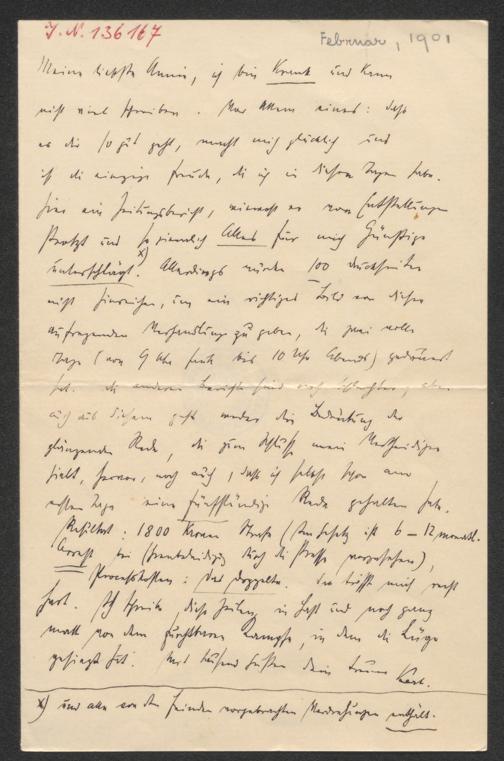 J. N. 136167
Februar, 1901
Meine liebste Annie, ich bin krank und kann
nicht viel schreiben. Vor Allem eines: daß
es dir so gut geht, macht mich glücklich und
ist die einzige Freude, die ich in diesen Tagen habe.
Hier ein Zeitungsbericht, wiewohl er von Entstellungen
strotzt und so ziemlich Alles für mich Günstige
unterschlägt. x) Allerdings würden 100 Druckseiten
nicht hinreichen, um ein richtiges Bild von dieser
aufregenden Verhandlung zu geben, die zwei volle
Tage (von 9 Uhr früh bis 10 Uhr Abends) gedauert
hat. Die anderen Berichte sind noch schlechter, aber
auch aus diesem geht weder die Bedeutung der
glänzenden Rede, die zum Schluß mein Vertheidiger
hielt, hervor, noch auch, daß ich selbst schon am
ersten Tage eine fünfstündige Rede gehalten habe.
Resultat: 1800 Kronen Strafe (Im Gesetz ist 6–12 monatl.
Arrest bei Ehrenbeleidigung durch die Presse vorgesehen),
Processkosten: das doppelte. Sie trifft mich recht
hart. Ich schreibe diese Zeilen in Hast und noch ganz
matt von dem furchtbaren Kampfe, in dem die Lüge
gesiegt hat. Mit tausend Grüßen dein treuer Karl.
x) und alle von den Feinden vorgebrachten Verdrehungen enthält.